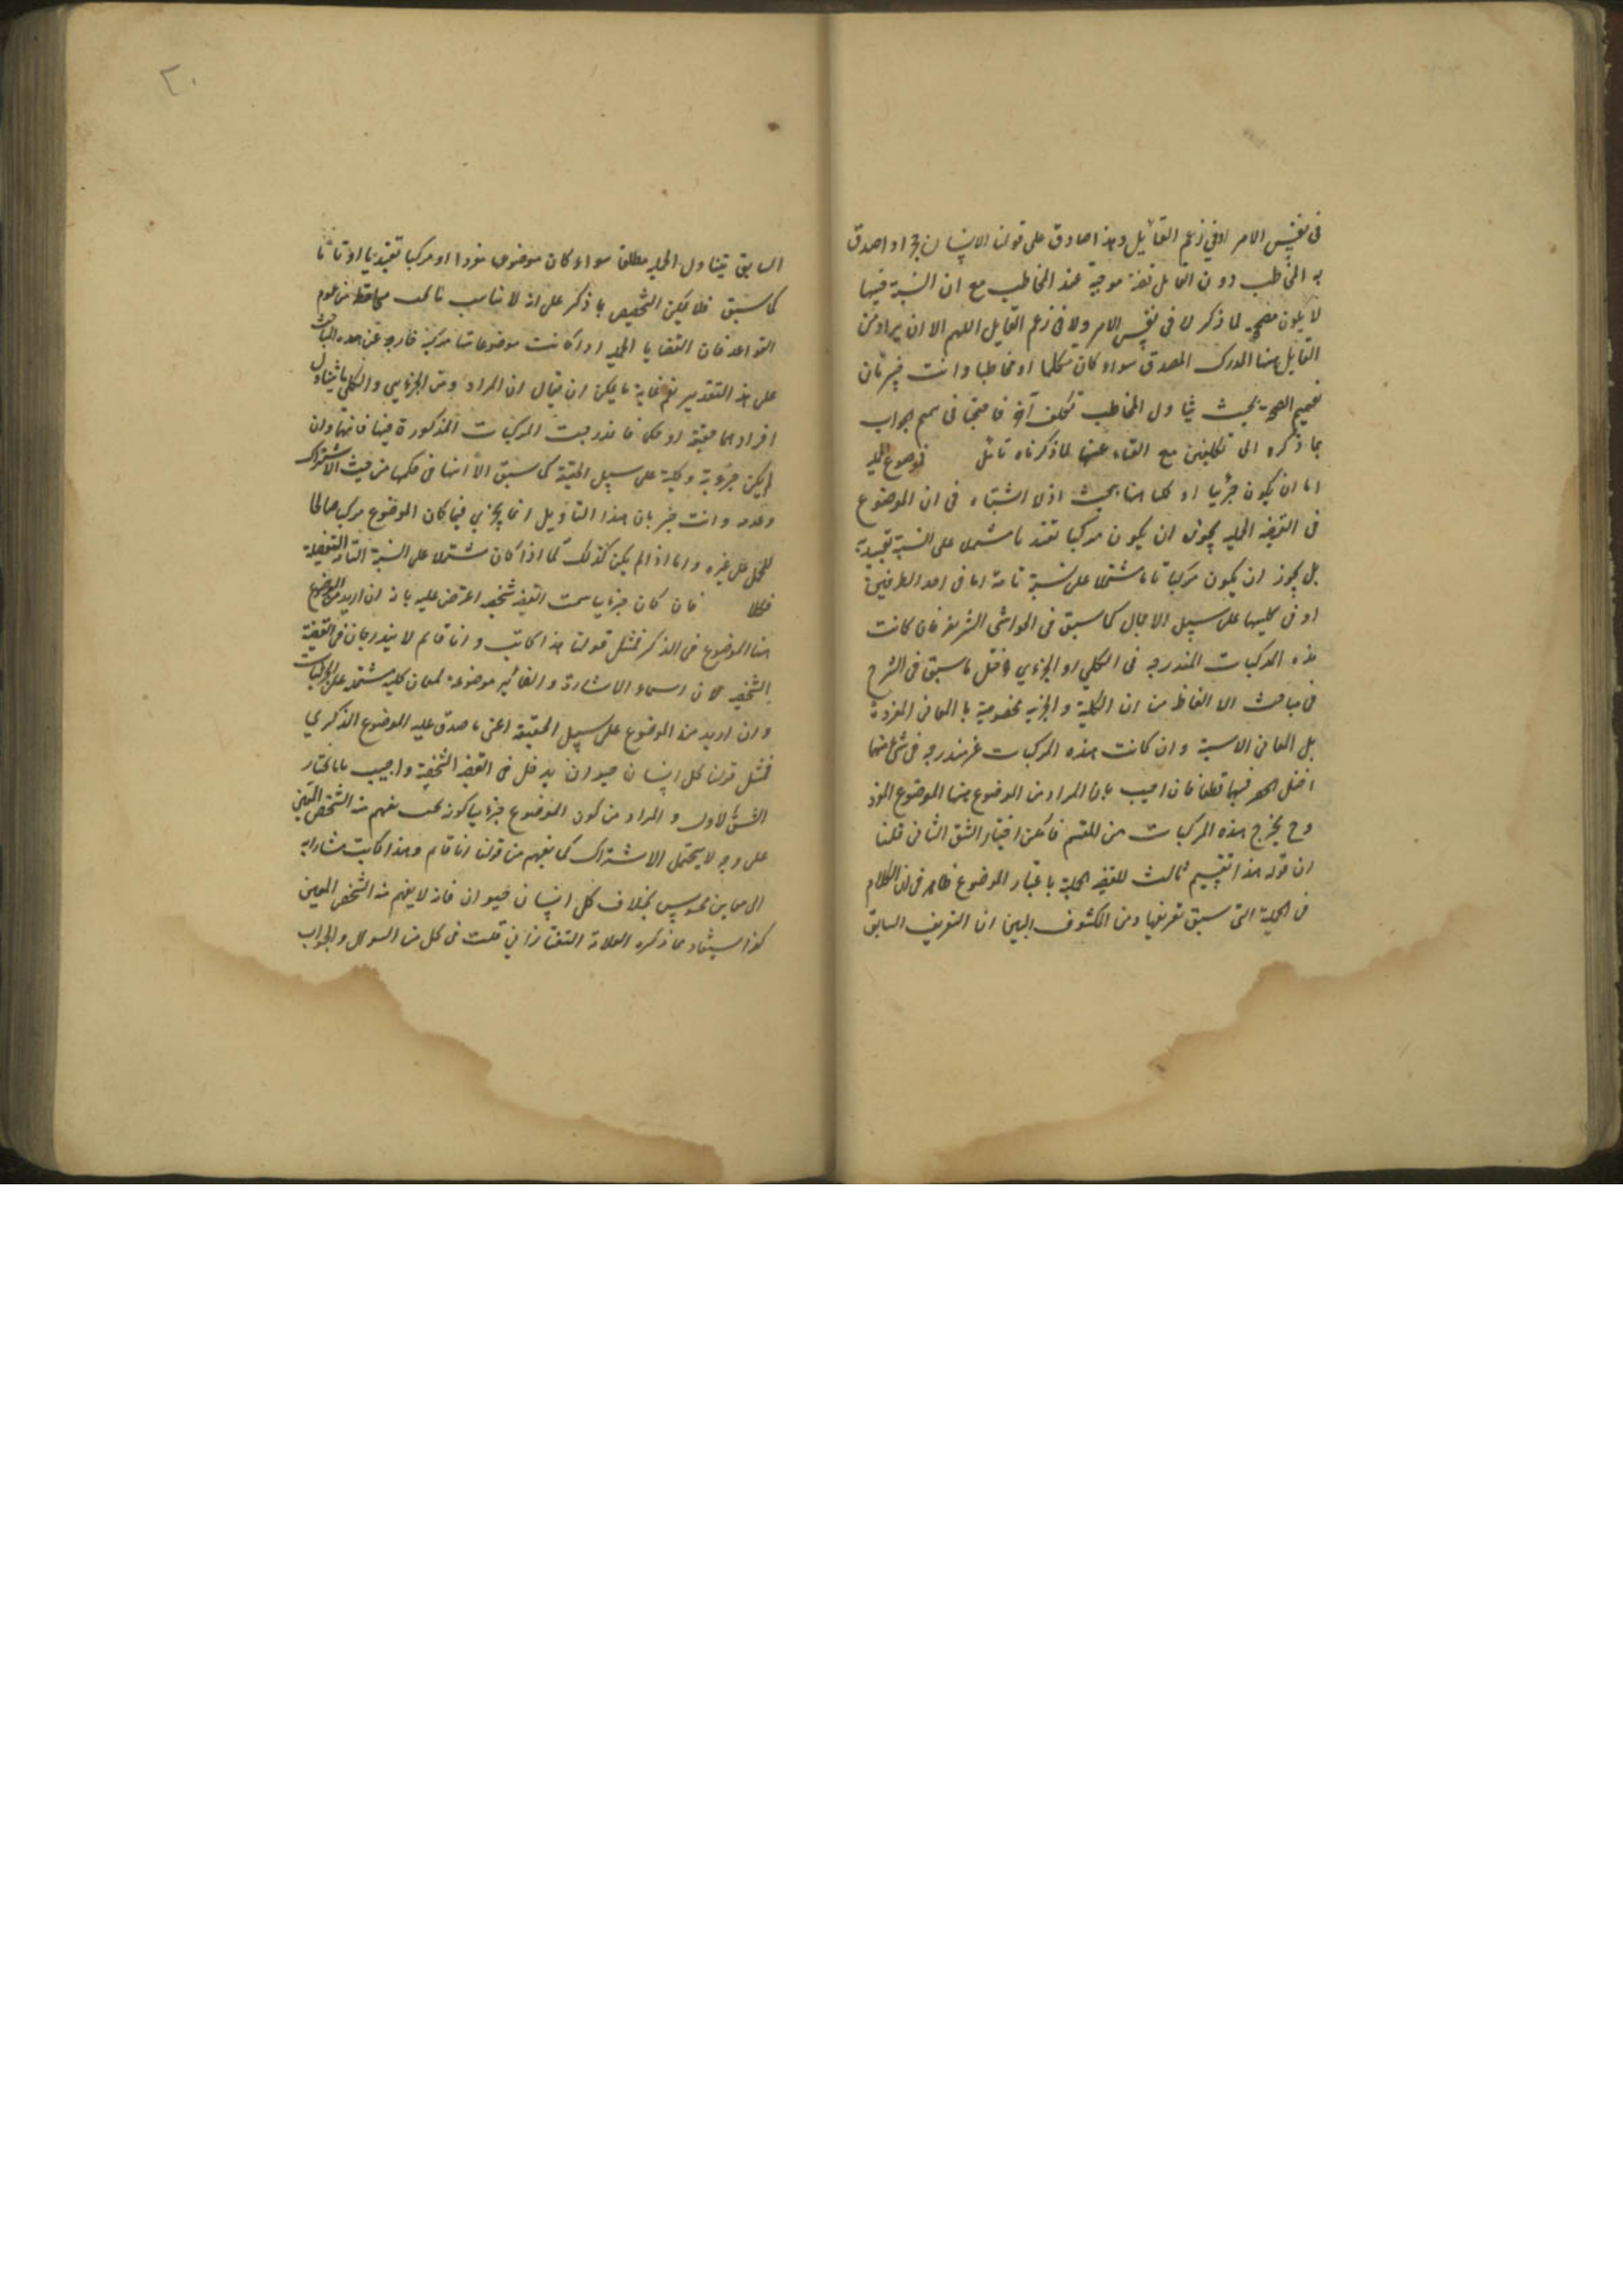 في نفس الامر او في زعم القايل وهذا صادق على قولنا الانسان حجر اذا صدق
به المخاطب دون القايل فانه موجبة عند المخاطب مع ان النسبة فيها
لا يكون مصححه لما ذكر لا في نفس الامر ولا في زعم القايل اللهم الا ان يراد من
القايل هنا المدرك المصدق سواء كان متكلما او مخاطبا وانت خبير بان
تعميم الصحة بحيث يتناول المخاطب تكلف آخر فاحتجنا في تتميم الجواب
بما ذكره الى تكلفين مع الغناء عنها لما ذكرناه تأمل فموضوع الحملية
اما ان يكون جزئيا او كليا هنا بحث اذ لا اشتباه في ان الموضوع
في القضية الحملية يجوز ان يكون مركبا مشتملا على النسبة تقييدية
بل يجوز ان يكون مركبا تاما مشتملا على نسبة تامة اما في احد الطرفين
او في كليهما على سبيل الاجمال كما سبق في الحواشي الشريفه فان كانت
هذه المركبات المندرجه في الكلي او الجزئي فاختل ما سبق في الشرح
في مباحث الالفاظ من ان الكلية والجزئية مخصوصة بالمعاني المفردة
بل المعاني الاسمية وان كانت هذه المركبات غير مندرجه في شئ منهما
اختل الحصر فيهما قطعا فان اجيب بان المراد من الموضوع هنا الموضوع المفرد
وح يخرج هذه المركبات من المقسم فامكن اختيار الشق الثاني قلنا
ان قوله هذا تقسيم ثالث للقضية الحملية باعتبار الموضوع ظاهر في ان الكلام
في الحملية التي سبق تعريفها ومن المكشوف البين ان التعريف السابق
٢٠
السابق يتناول الحملية مطلقا سواء كان موضوعها مفردا او مركبا تقييديا او تاما
كما سبق فلا يمكن التخصيص بما ذكر على انه لا يناسب من عموم
القواعد فان القضايا الحملية اذا كانت موضوعاتها مركبة خارجه عن هذه المباحث
على هذا التقدير نعم غاية ما يمكن ان يقال ان المراد من الجزئي والكلي ما يتناول
افرادهما حقيقة او حكما فاندرجت المركبات المذكورة فيهما فانها وان
لم يكن جزئية وكلية على سبيل الحقيقة كما سبق الا انها في حكمها من حيث الاشتراك
وعدمه وانت خبير بان هذا التأويل انما يجزي فيما كان الموضوع مركبا صالحا
للحمل على غيره واما اذا لم يكن كذلك كما اذا كان مشتملا على النسبة التامة التفصيلية
فكلا فان كان جزئيا سميت القضية شخصية اعترض عليه بانه ان اريد من الموضوع
هنا الموضوع في الذكر فمثل قولنا هذا كاتب وانا قائم لا يندرجان في القضية
الشخصية لان اسماء الاشارة والضمائر موضوعه لمعان كلية مشتملة على الجزئيات
وان اريد منه الموضوع على سبيل الحقيقة اعني ما صدق عليه الموضوع الذكري
فمثل قولنا كل انسان حيوان يدخل في القضية الشخصية واجيب بانا نختار
الشق الاول والمراد من كون الموضوع جزئيا كونه بحيث يفهم منه الشخص المعين
على وجه لا يحتمل الاشتراك كما يفهم من قولنا انا قائم وهذا كاتب مشارا به
الى معاين محسوس بخلاف كل انسان حيوان فانه لا يفهم منه الشخص المعين
كذا يستفاد مما ذكره العلامة التفتازاني قلت في كل من السوال والجواب